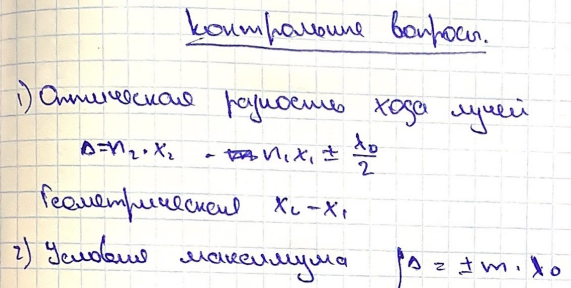 Контрольные вопросы.
1) Оптическая разность хода лучей
Δ = n₂ · x₂ - n₁x₁ ± λ₀/2
Геометрическая x₂ - x₁
2) Условия максимума Δ = ± m · λ₀